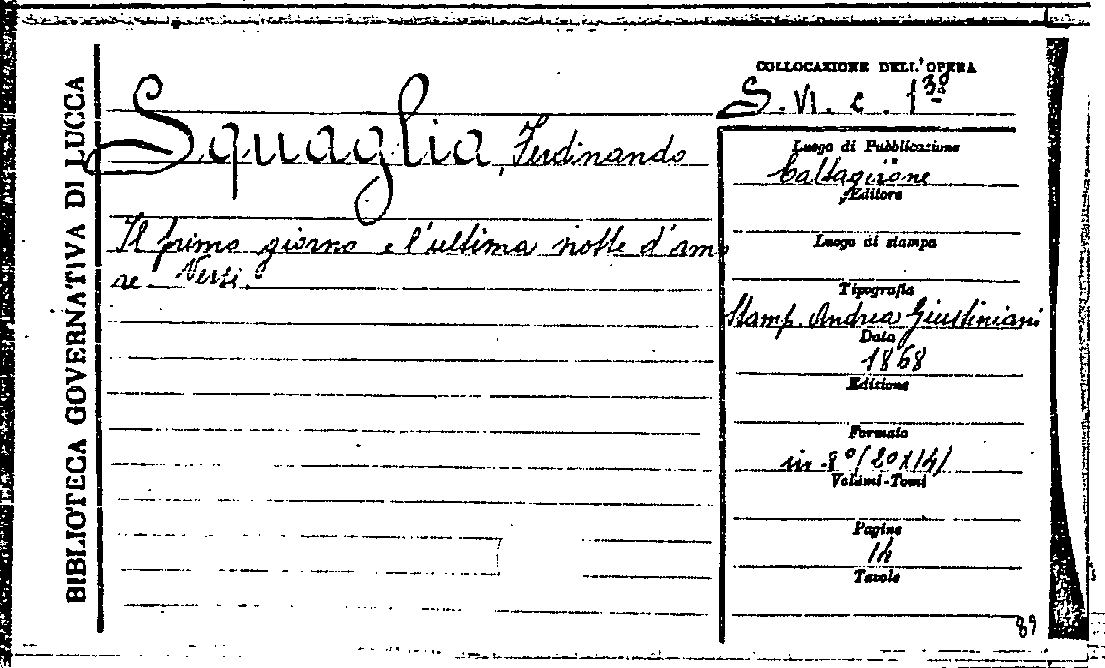 BIBLIOTECA GOVERNATIVA DI LUCCA
Squaglia, Ferdinando
Il primo giorno e l'ultima notte d'amo
re. Versi.
COLLOCAZIONE DELL'OPERA
S. VI. c. 138
Luogo di Pubblicazione
Caltagirone
Editore
Luogo di stampa
Tipografia
Stamp. Andrea Giustiniani
Data
1868
Edizione
Formato
in-8°(20x14)
Volumi-Tomi
Pagine
14
Tavole
89